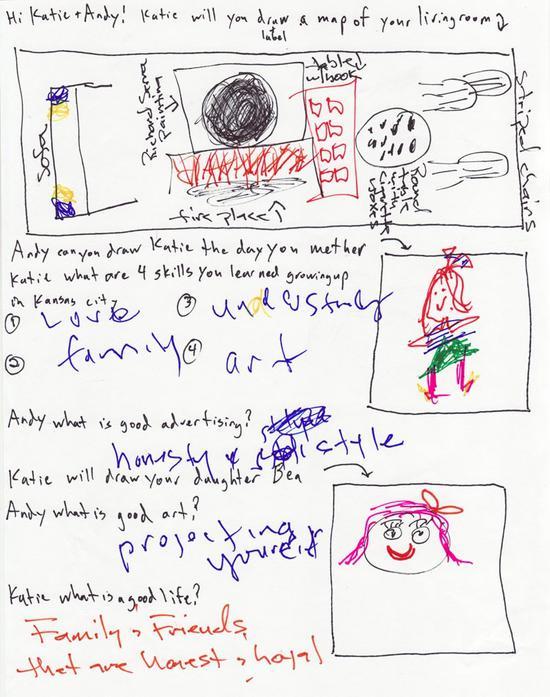 Hi Katie + Andy! Katie will you draw a map of your livingroom
+ label
Sofa
Richard Serra
Painting
table
w/book
fireplace
Round
table
with
cigarette
boxes
striped chairs
Andy can you draw Katie the day you met her
Katie what are 4 skills you learned growing up
in Kansas city?
① Love
③ understanding
② family
④ art
Andy what is good advertising?
honesty & style
Katie will draw your daughter Bea
Andy what is good art?
projecting
yourself
Katie what is a good life?
Family & Friends
that are honest & loyal